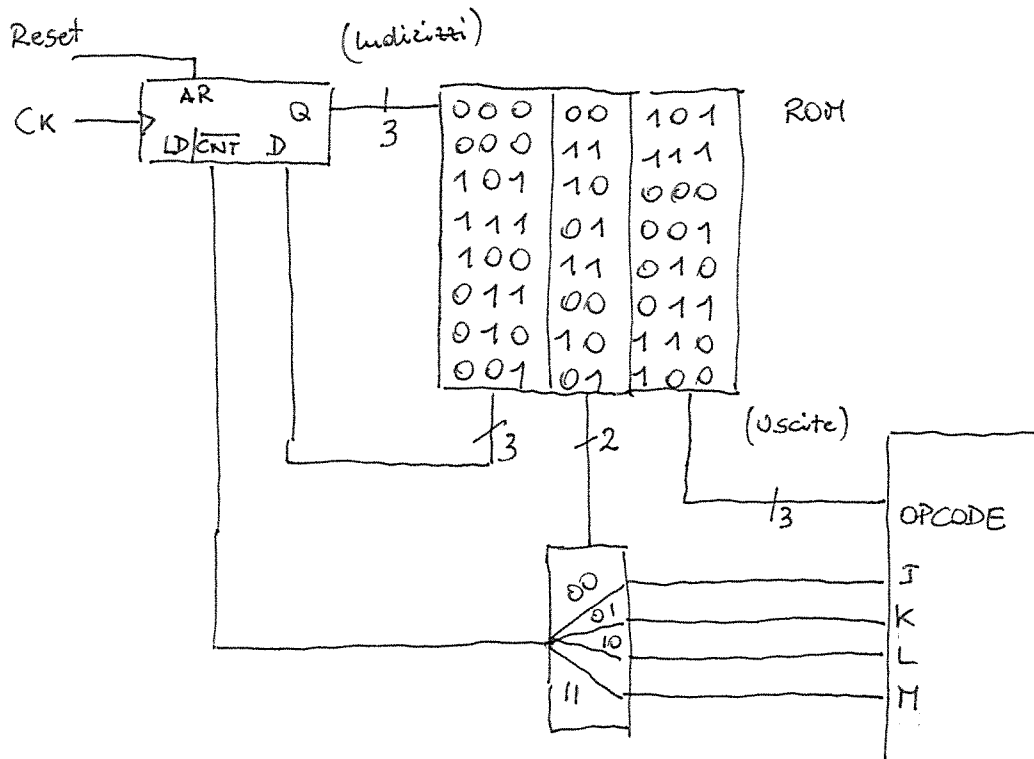 Reset
(Indirizzi)
CK
AR
Q
LD/CNT D
3
ROM
000 00 101
000 11 111
101 10 000
111 01 001
100 11 010
011 00 011
010 10 110
001 01 100
3
2
(Uscite)
3
OPCODE
00
01
10
11
J
K
L
M